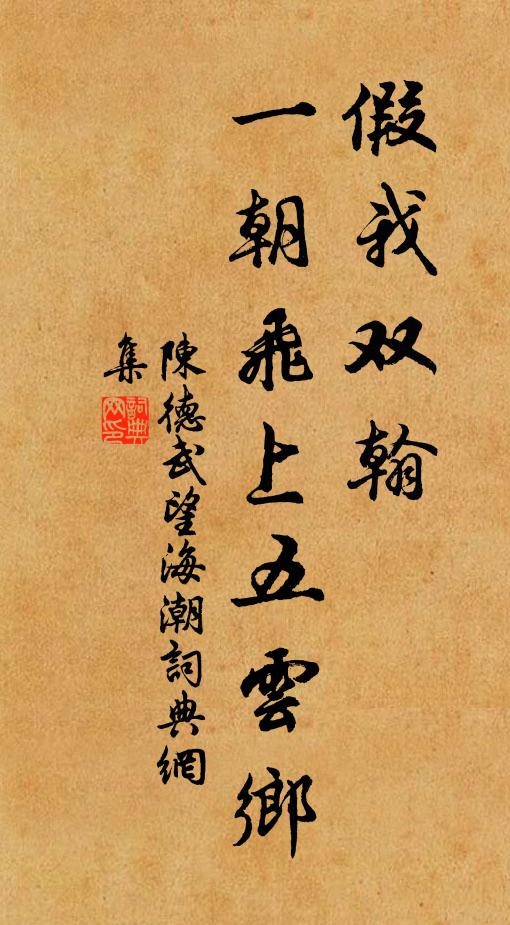 假我双翰
一朝飛上五雲鄉
陳德武望海潮詞典網
集
詞典網印